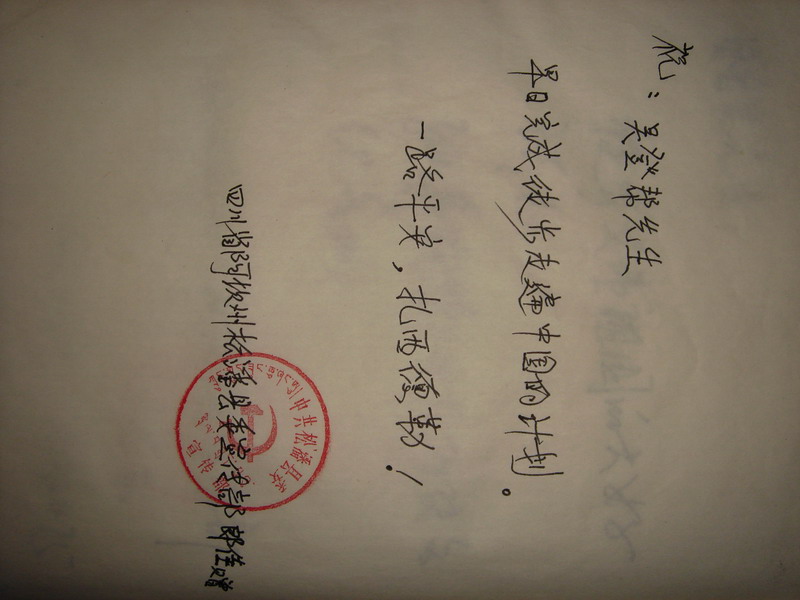 祝：吴登邦先生
早日完成徒步走遍中国的计划。
一路平安，扎西德勒！
四川省阿坝州松潘县委宣传部
中共松潘县委
宣传部